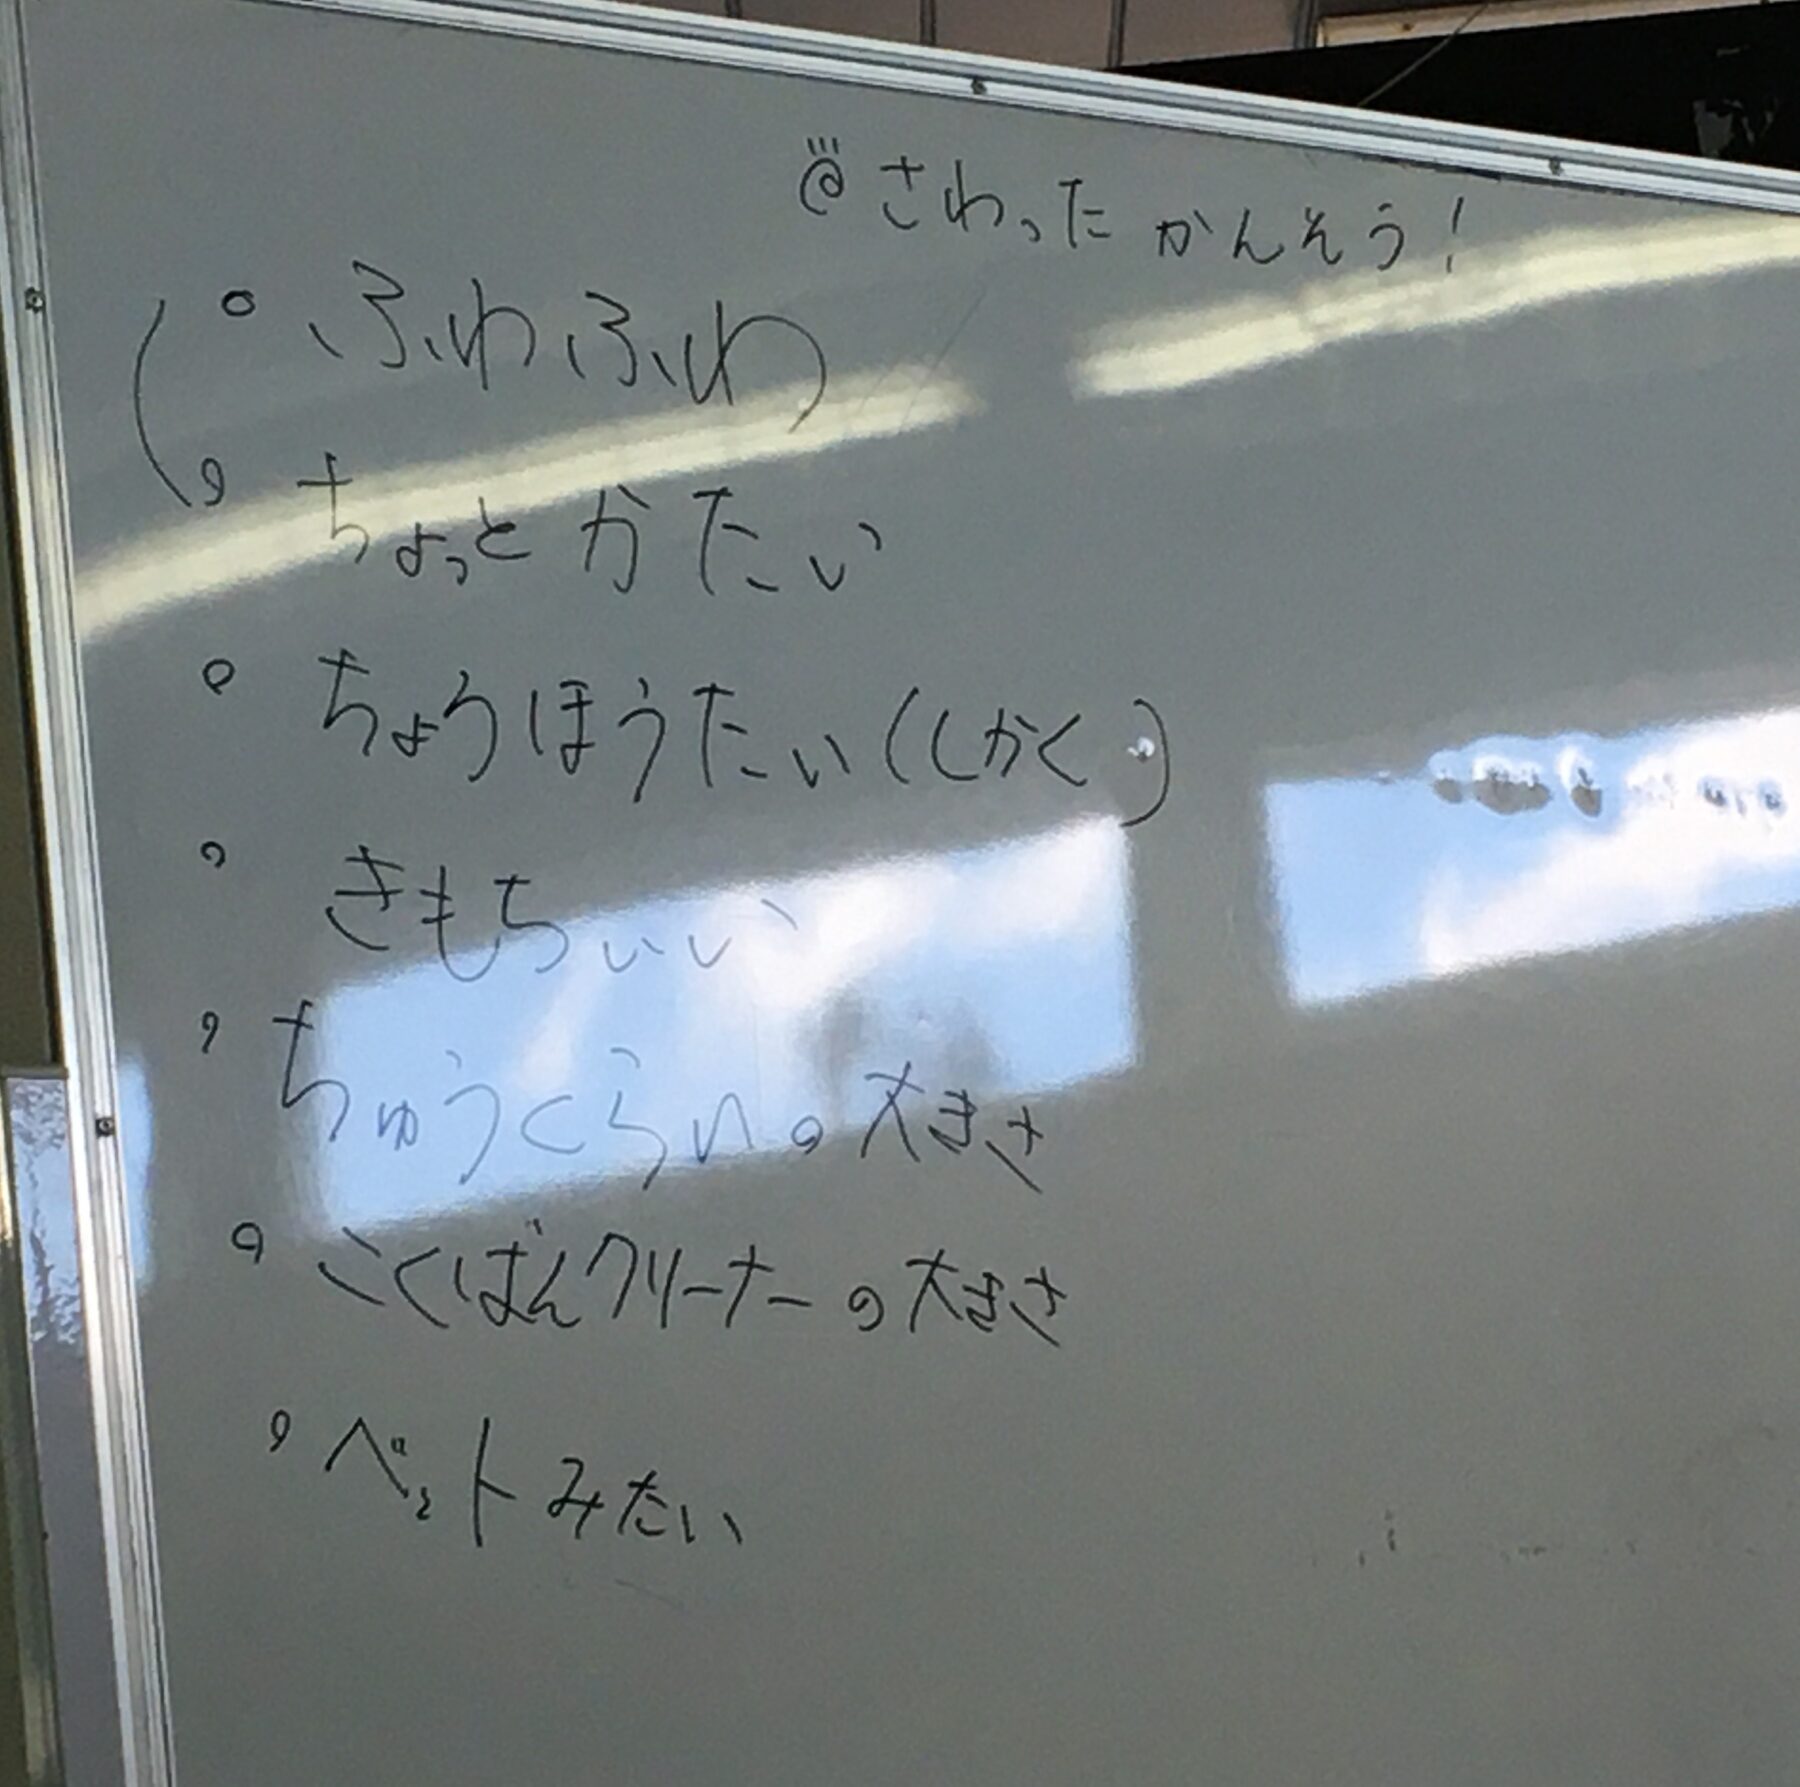 さわった かんそう!
・ふわふわ
・ちょっと かたい
・ちょうほうたい(しかく)
・きもちぃい
・ちゅうくらいの大きさ
・こくばんクリーナーの大きさ
・ベットみたい